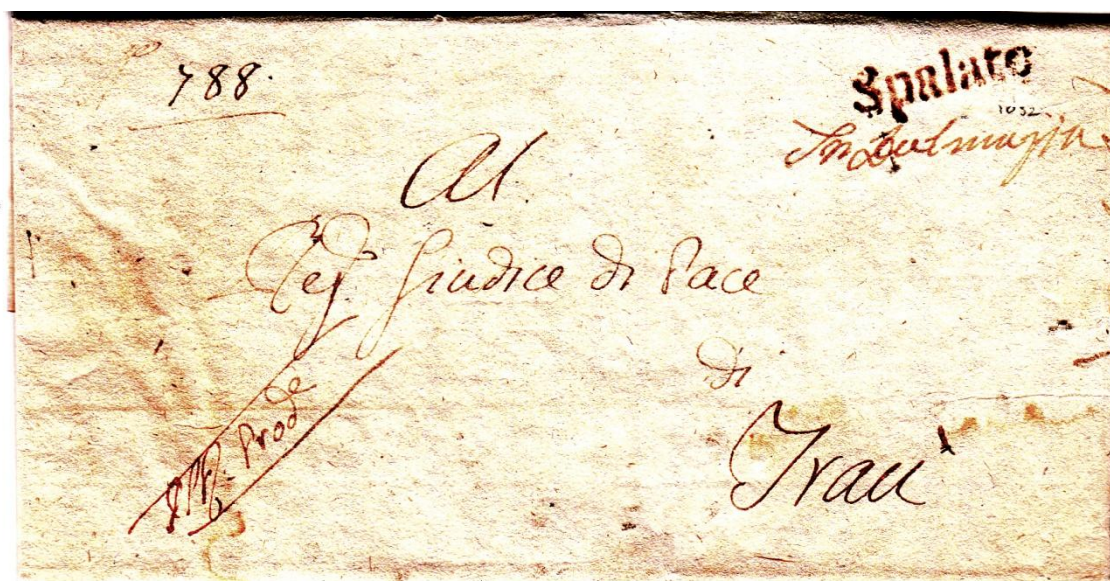 788.
Spalato
1832
In Dalmazia
Al
Giudice di Pace
di
Traù
Prode